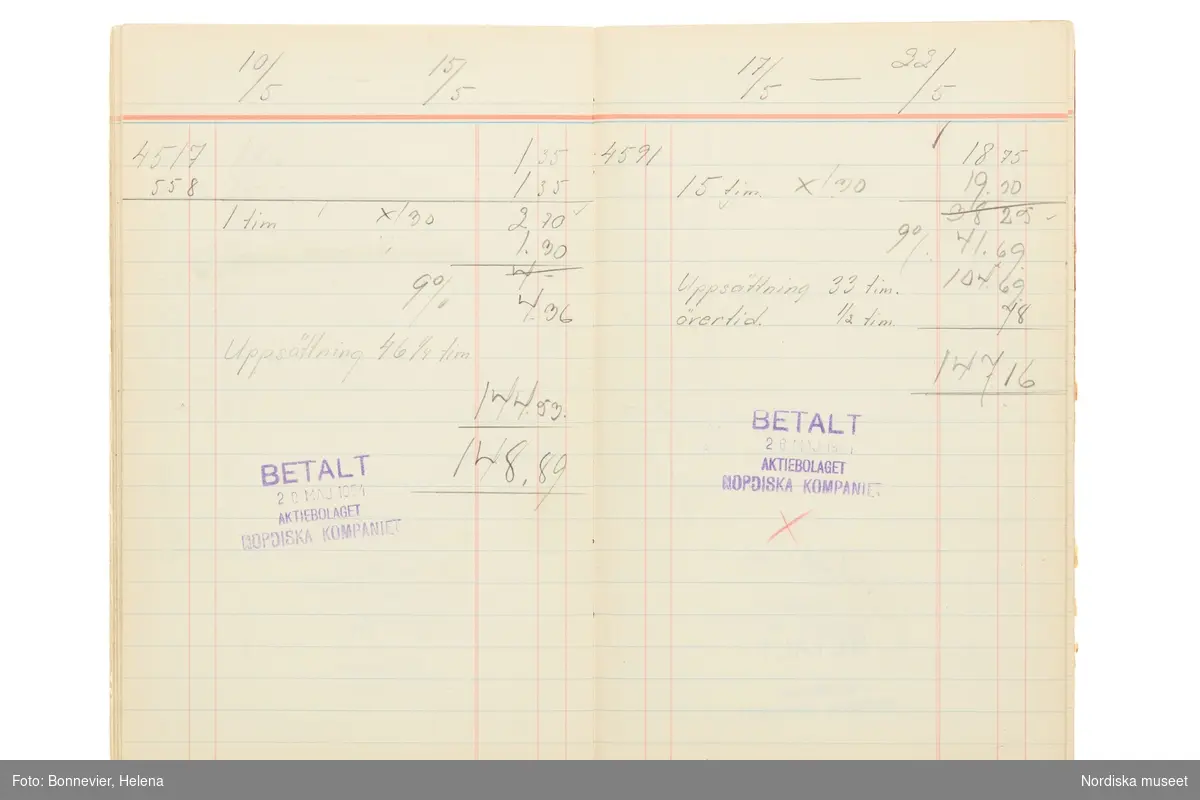 10/5 15/5
4517 1 35
558 1 35
1 tim x/30 2,70 ✓
1.30
4 -
9% 4.36
Uppsättning 46 1/4 tim
144.53.
148,89
BETALT
2 8 MAJ 1951
AKTIEBOLAGET
NORDISKA KOMPANIET
17/5 — 22/5
4591 18 75
15 tim. x/30 19.50
38 25 -
9%. 41.69
Uppsättning 33 tim. 104.69
övertid. 1/2 tim. 78
147,16
BETALT
2 8 MAJ
AKTIEBOLAGET
NORDISKA KOMPANIET
Foto: Bonnevier, Helena
Nordiska museet